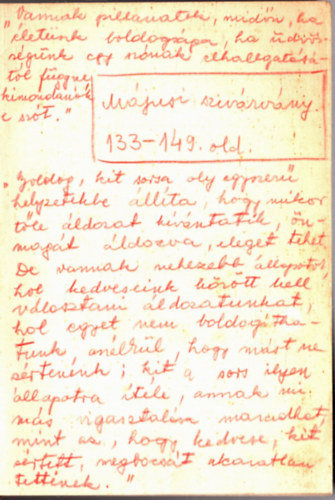 „Vannak pillanatok, midőn, ha
életünk boldogsága, ha üdvös-
ségünk egy szónak elhallgatásá-
tól függne,
kimondanók
e szót."
Májusi szivárvány.
133–149. old.
„Boldog, kit sorsa oly egyszerű
helyzetekbe állíta, hogy mikor
tőle áldozat kívántatik, ön-
magát áldozva, eleget tehet.
De vannak nehezebb állapotok
hol kedveseink között kell
választani áldozatunkat,
hol egyet nem boldogítha-
tunk anélkül, hogy mást ne
sértenénk; kit a sors ilyen
állapotra ítéle, annak mi
más vigasztalása maradhat,
mint az, hogy kedvese, kit
sértett, megbocsát akaratlan
tettének."